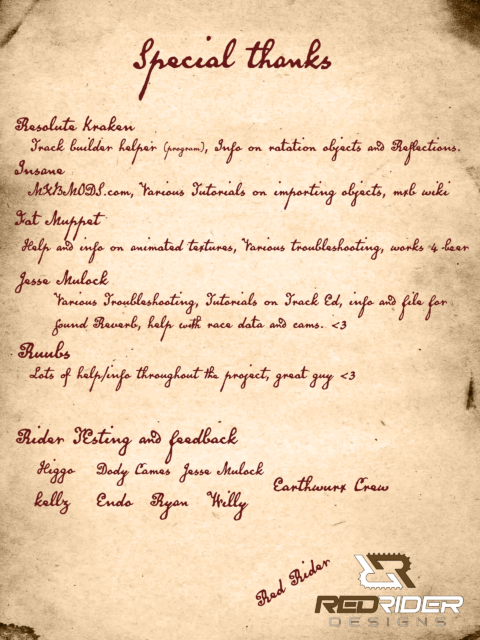 Special thanks
Resolute Kraken
Track builder helper (program), Info on ratation objects and Reflections.
Insane
MXBMODS.com, Various Tutorials on importing objects, mxb wiki
Fat Muppet
Help and info on animated textures, Various troubleshooting, works 4 beer
Jesse Mulock
Various Troubleshooting, Tutorials on Track Ed, info and file for
sound Reverb, help with race data and cams. <3
Ruubs
Lots of help/info throughout the project, great guy <3
Rider TEsting and feedback
Higgo Dody Cames Jesse Mulock
Earthwurx Crew
kellz Endo Ryan Willy
Red Rider
REDRIDER
DESIGNS